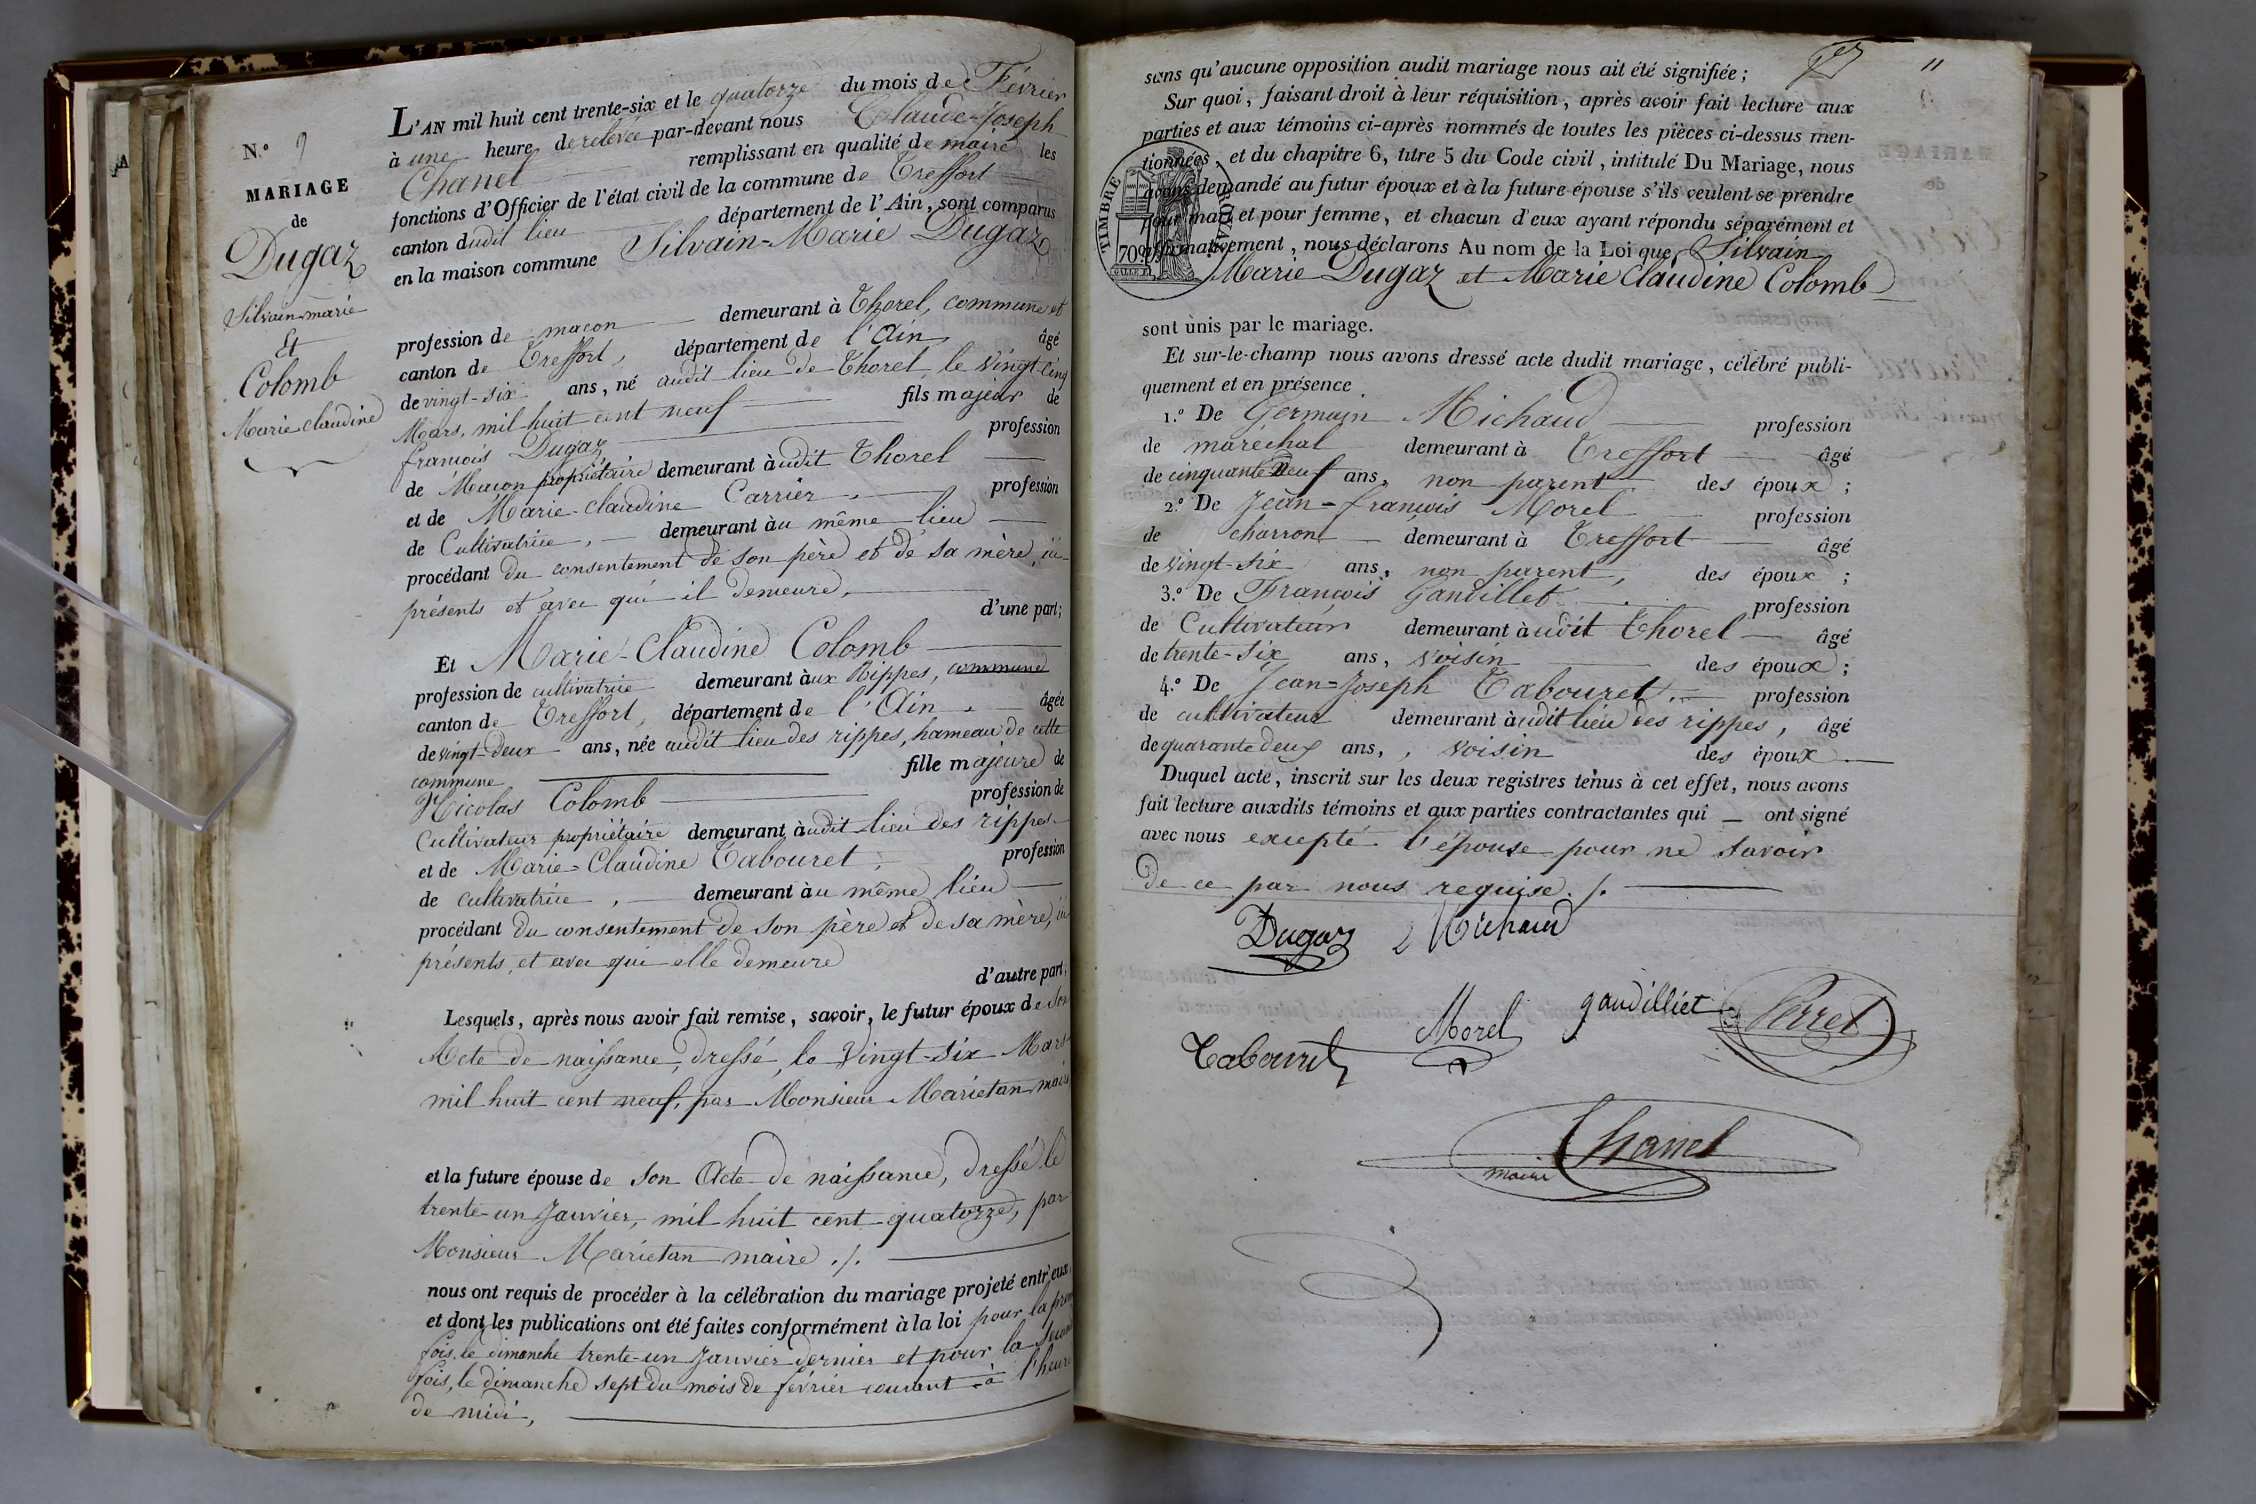 N.º 9
MARIAGE
de
Dugaz
Silvain-marie
Et
Colomb
Marie claudine
L'AN mil huit cent trente-six et le quatorze du mois de Février
à une heure de relevée par-devant nous Claude-Joseph
Chanel remplissant en qualité de maire les
fonctions d'Officier de l'état civil de la commune de Treffort
canton dudit lieu département de l'Ain, sont comparus
en la maison commune Silvain-Marie Dugaz
profession de macon demeurant à Thorel, commune et
canton de Treffort, département de l'Ain, âgé
de vingt-six ans, né audit lieu de Thorel le vingt-cinq
Mars, mil huit cent neuf fils majeur de
françois Dugaz profession
de Macon propriétaire demeurant àudit Thorel
et de Marie-claudine Carrier, profession
de Cultivatrice, demeurant àu même lieu
procédant du consentement de son père et de sa mère, ici
présents et avec qui il demeure, d'une part;
Et Marie-Claudine Colomb
profession de cultivatrice demeurant àux Rippes, commune
canton de Treffort, département de l'Ain, âgée
de vingt-deux ans, née audit lieu des rippes, hameau de cette
commune fille majeure de
Nicolas Colomb profession de
Cultivateur propriétaire demeurant àudit lieu des rippes
et de Marie-Claudine Tabouret, profession
de cultivatrice, demeurant àu même lieu
procédant du consentement de son père et de sa mère, ici
présents, et avec qui elle demeure d'autre part,
Lesquels, après nous avoir fait remise, savoir, le futur époux de son
Acte de naissance, dressé, le Vingt-six Mars
mil huit cent neuf, par Monsieur Marietan maire
et la future épouse de son Acte de naissance, dressé le
trente-un Janvier, mil huit cent quatorze, par
Monsieur Marietan maire ./.
nous ont requis de procéder à la célébration du mariage projeté entr'eux,
et dont les publications ont été faites conformément à la loi pour la prem
fois, le dimanche trente-un Janvier dernier et pour la second
fois, le dimanche sept du mois de février courant à l'heure
de midi,
11
sans qu'aucune opposition audit mariage nous ait été signifiée;
Sur quoi, faisant droit à leur réquisition, après avoir fait lecture aux
parties et aux témoins ci-après nommés de toutes les pièces ci-dessus men-
tionnées, et du chapitre 6, titre 5 du Code civil, intitulé Du Mariage, nous
avons demandé au futur époux et à la future épouse s'ils veulent se prendre
pour mari et pour femme, et chacun d'eux ayant répondu séparément et
affirmativement, nous déclarons Au nom de la Loi que Silvain
Marie Dugaz et Marie Claudine Colomb
TIMBRE ROYAL
70c
sont unis par le mariage.
Et sur-le-champ nous avons dressé acte dudit mariage, célébré publi-
quement et en présence
1.º De Germain Michaud profession
de maréchal demeurant à Treffort âgé
de cinquante Neuf ans, non parent des époux;
2.º De Jean-françois Morel profession
de charron demeurant à Treffort âgé
de vingt-six ans, non parent, des époux;
3.º De François Gandillet profession
de Cultivateur demeurant àudit Thorel âgé
de trente-six ans, voisin des époux;
4.º De Jean-Joseph Tabouret, profession
de cultivateur demeurant àudit lieu des rippes, âgé
de quarante deux ans, voisin des époux
Duquel acte, inscrit sur les deux registres tenus à cet effet, nous avons
fait lecture auxdits témoins et aux parties contractantes qui ont signé
avec nous excepté l'épouse pour ne savoir
de ce par nous requise ./.
Dugaz Michaud
Morel gandilliet Perret
Tabouret
Chanel
maire